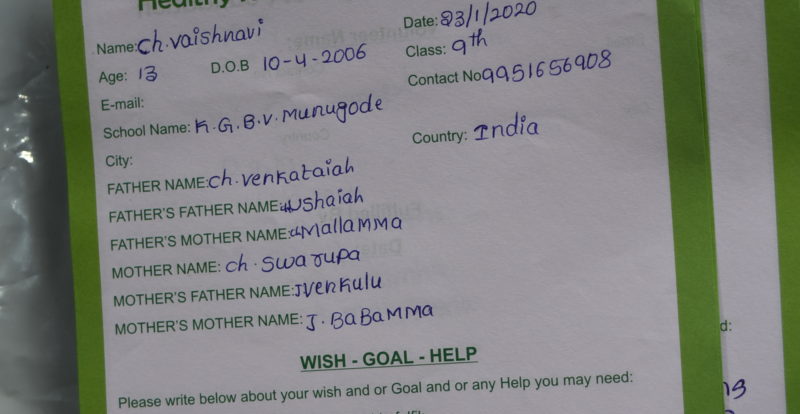 Healthy
Name: Ch. Vaishnavi Date: 23/1/2020
Age: 13 D.O.B 10-4-2006 Class: 9th
E-mail: Contact No 9951656908
School Name: K.G.B.V. Munugode
City: Country: India
FATHER NAME: Ch. Venkataiah
FATHER'S FATHER NAME: Ushaiah
FATHER'S MOTHER NAME: Mallamma
MOTHER NAME: Ch. Swarupa
MOTHER'S FATHER NAME: J Venkulu
MOTHER'S MOTHER NAME: J. BaBamma
WISH - GOAL - HELP
Please write below about your wish and or Goal and or any Help you may need:
d: